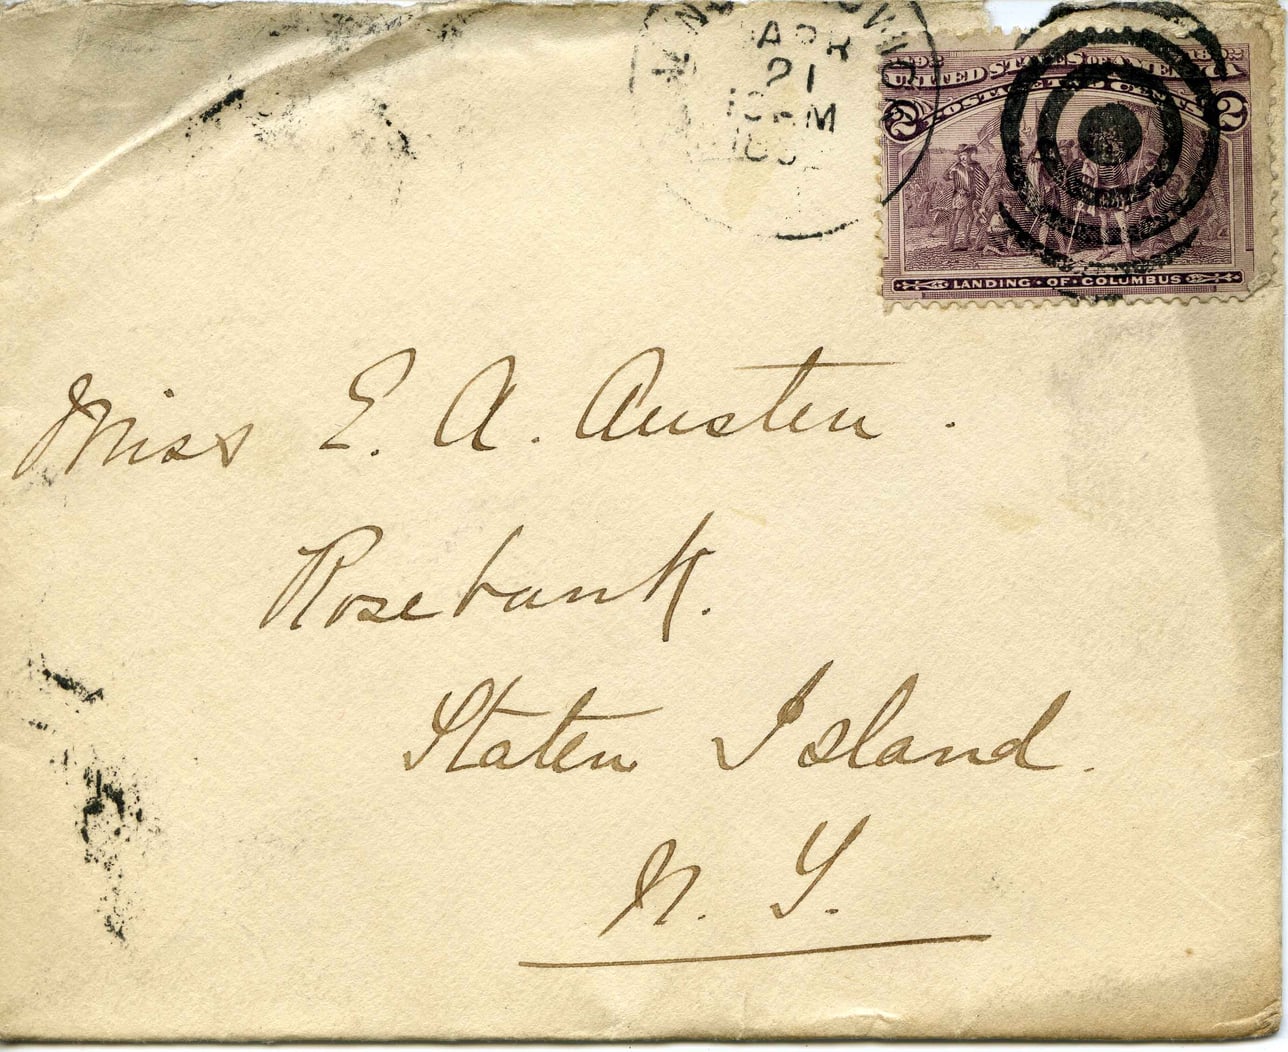 APR
21
10 AM
1492 1892
UNITED STATES OF AMERICA
POSTAGE TWO CENTS
2 2
LANDING · OF · COLUMBUS
Miss E. A. Austen.
Rosebank.
Staten Island.
N. Y.